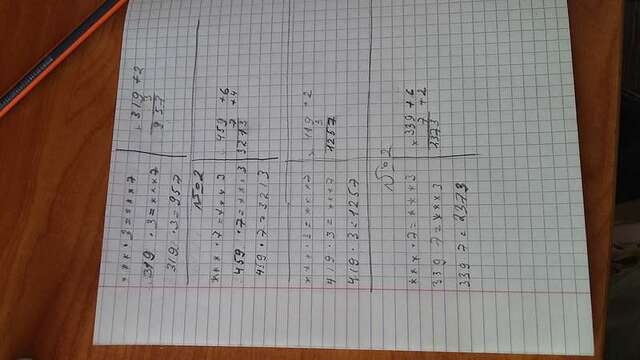 *** · 3 = *** 7
319 · 3 = *** 7
319 · 3 = 957
319 +2
3
957
№ 2
*** · 7 = *** 3
459 · 7 = *** 3
459 · 7 = 3213
459 +6
7 +4
3213
*** · 3 = *** 7
419 · 3 = *** 7
419 · 3 = 1257
× 419 +2
3
1257
№ 2
*** · 7 = *** 3
339 7 = *** 3
339 7 = 2373
× 339 +6
7 +2
2373